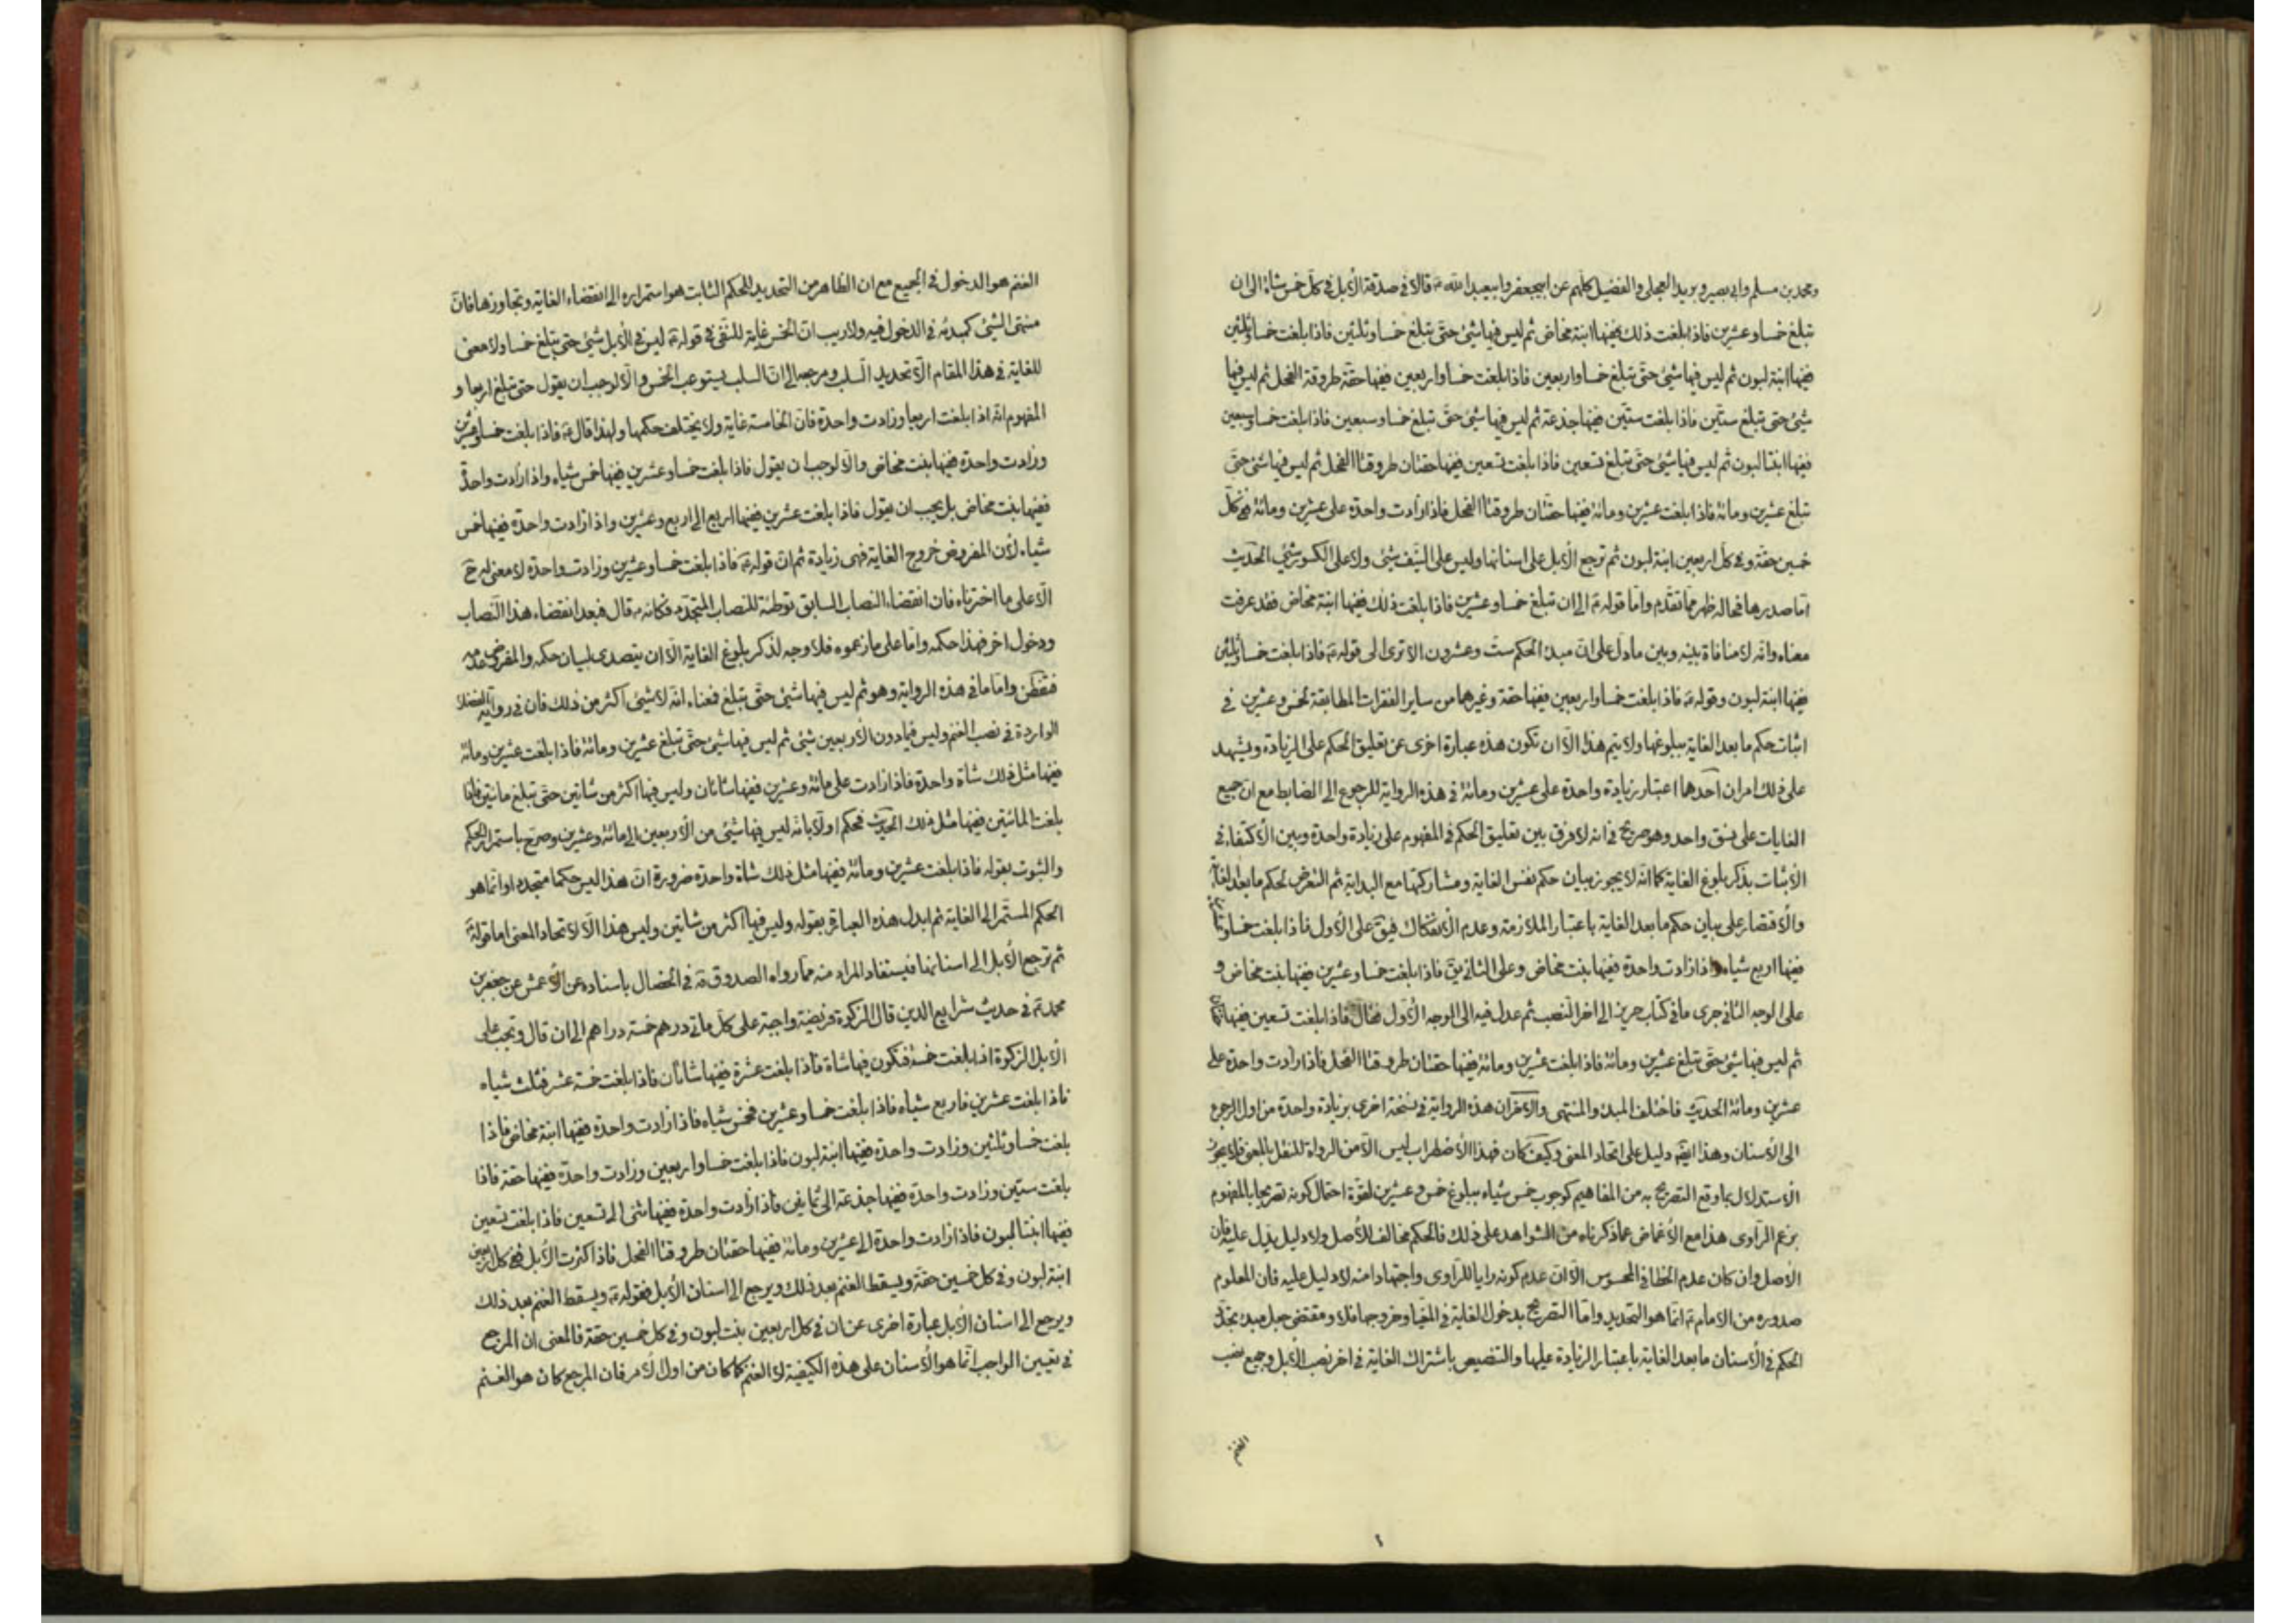 ومحمد بن مسلم وابى بصير وبريد العجلى والفضيل كلهم عن ابيجعفر وابيعبد الله ع قالا فى صدقة الأبل فى كل خمس شاة الى ان
تبلغ خمسا وعشرين فاذا بلغت ذلك ففيها ابنة مخاض ثم ليس فيها شئ حتى تبلغ خمسا وثلثين فاذا بلغت خمسا وثلثين
ففيها ابنة لبون ثم ليس فيها شئ حتى تبلغ خمسا واربعين فاذا بلغت خمسا واربعين ففيها حقة طروقة الفحل ثم ليس فيها
شئ حتى تبلغ ستين فاذا بلغت ستين ففيها جذعة ثم ليس فيها شئ حتى تبلغ خمسا وسبعين فاذا بلغت خمسا وسبعين
ففيها ابنتا لبون ثم ليس فيها شئ حتى تبلغ تسعين فاذا بلغت تسعين ففيها حقتان طروقتا الفحل ثم ليس فيها شئ حتى
تبلغ عشرين ومائة فاذا بلغت عشرين ومائة ففيها حقتان طروقتا الفحل فاذا زادت واحدة على عشرين ومائة ففى كل
خمسين حقة وفى كل اربعين ابنة لبون ثم ترجع الأبل على اسنانها وليس على النيف شئ ولا على الكسور شئ الحديث
اما صدرها فحاله ظهر مما تقدم واما قوله ع الى ان تبلغ خمسا وعشرين فاذا بلغت ذلك ففيها ابنة مخاض فقد عرفت
معناه وانه لا منافاة بينه وبين ما دل على ان مبدء الحكم ست وعشرون الا ترى الى قوله ع فاذا بلغت خمسا وثلثين
ففيها ابنة لبون وقوله ع فاذا بلغت خمسا واربعين ففيها حقة وغيرهما من ساير الفقرات المطابقة لخمس وعشرين فى
اثبات حكم ما بعد الغاية ببلوغها ولا يتم هذا الا ان تكون هذه عبارة اخرى عن تعليق الحكم على الزيادة ويشهد
على ذلك امران احدها اعتبار زيادة واحدة على عشرين ومائة فى هذه الرواية للرجوع الى الضابط مع ان جميع
الغايات على نسق واحد وهو صريح فى انه لا فرق بين تعليق الحكم فى المفهوم على زيادة واحدة وبين الأكتفاء فى
الأثبات بذكر بلوغ الغاية كما انه لا يجوز بيان حكم نفس الغاية ومشاركتها مع البداية ثم التعرض لحكم ما بعد الغاية
والأقتصار على بيان حكم ما بعد الغاية باعتبار الملازمة وعدم الأنفكاك فيق على الأول فاذا بلغت خمسا
ففيها اربع شياه واذا زادت واحدة ففيها بنت مخاض وعلى الثانى يق فاذا بلغت خمسا وعشرين ففيها بنت مخاض و
على الوجه الثانى جرى ما فى كتاب حريز الى اخر النصب ثم عدل فيه الى الوجه الأول فقال فاذا بلغت تسعين ففيها
ثم ليس فيها شئ حتى تبلغ عشرين ومائة فاذا بلغت عشرين ومائة ففيها حقتان طروقتا الفحل فاذا زادت واحدة على
عشرين ومائة الحديث فاختلف المبدء والمنتهى والأخر ان هذه الرواية فى نسخة اخرى بزيادة واحدة من اول الرجوع
الى الأسنان وهذا ايضا دليل على اتحاد المعنى وكيف كان فهذا الأضطراب ليس الا من الرواة للنقل بالمعنى فلا يجوز
الأستدلال بما وقع التصريح به من المفاهيم كوجوب خمس شياه ببلوغ خمس وعشرين لقوة احتمال كونه تصريحا بالمفهوم
بزعم الراوى هذا مع الأغماض عما ذكرناه من الشواهد على ذلك فالحكم مخالف للأصل ولا دليل يدل عليه فان
الأصل وان كان عدم الخطا فى المحسوس الا ان عدم كونه رايا للراوى واجتهادا منه لا دليل عليه فان المعلوم
صدوره من الامام ع انما هو التحديد واما التصريح بدخول الغاية فى المغيا وخروجها فلا ومقتضى جعل مبدء تجدد
الحكم فى الأسنان ما بعد الغاية باعتبار الزيادة عليها والتنصيص باشتراك الغاية فى اخر نصب الأبل وجميع نصب
الغنم
الغنم هو الدخول فى الجميع مع ان الظاهر من التحديد للحكم الثابت هو استمراره الى انقضاء الغاية وتجاوزها فان
منتهى الشئ كمبدئه فى الدخول فيه ولا ريب ان الخمس غاية للنفى فى قوله ع ليس فى الأبل شئ حتى يبلغ خمسا ولا معنى
للغاية فى هذا المقام الا تحديد السلب ومرجعه الى ان السلب يستوعب الخمس والا لوجب ان يقول حتى تبلغ اربعا و
المفهوم انه اذا بلغت اربعا وزادت واحدة فان الخامسة غاية ولا يختلف حكمها ولهذا قال ع فاذا بلغت خمسا وعشرين
وزادت واحدة ففيها بنت مخاض والا لوجب ان يقول فاذا بلغت خمسا وعشرين ففيها خمس شياه واذا زادت واحدة
ففيها بنت مخاض بل يجب ان يقول فاذا بلغت عشرين ففيها اربع الى اربع وعشرين واذا زادت واحدة ففيها خمس
شياه لأن المفروض خروج الغاية فهى زيادة ثم ان قوله ع فاذا بلغت خمسا وعشرين وزادت واحدة لا معنى له ح
الا على ما اخترناه فان انقضاء النصاب السابق توطئة للنصاب المتجدد فكانه ع قال فبعد انقضاء هذا النصاب
ودخول اخر فهذا حكمه واما على ما زعموه فلا وجه لذكر بلوغ الغاية الا ان يتصدى لبيان حكمه والمفروض عدمه
فتفطن واما ما فى هذه الرواية وهو ثم ليس فيها شئ حتى تبلغ فمعناه انه لا شئ اكثر من ذلك فان فى رواية الفضلاء
الواردة فى نصب الغنم وليس فيما دون الأربعين شئ ثم ليس فيها شئ حتى تبلغ عشرين ومائة فاذا بلغت عشرين ومائة
ففيها مثل ذلك شاة واحدة فاذا زادت على مائة وعشرين ففيها شاتان وليس فيها اكثر من شاتين حتى تبلغ مائتين فاذا
بلغت المائتين ففيها مثل ذلك الحديث فحكم اولا بانه ليس فيها شئ من الأربعين الى مائة وعشرين وصرح باستمرار الحكم
والثبوت بقوله فاذا بلغت عشرين ومائة ففيها مثل ذلك شاة واحدة ضرورة ان هذا ليس حكما متجددا وانما هو
الحكم المستمر الى الغاية ثم ابدل هذه العبارة بقوله وليس فيها اكثر من شاتين وليس هذا الا لاتحاد المعنى اما قوله ع
ثم ترجع الأبل الى اسنانها فيستفاد المراد منه مما رواه الصدوق ره فى الخصال باسناده عن الأعمش عن جعفر بن
محمد ع فى حديث شرايع الدين قال الزكوة فريضة واجبة على كل مأتى درهم خمسة دراهم الى ان قال وتجب على
الأبل الزكوة اذا بلغت خمسة فتكون فيها شاة فاذا بلغت عشرة ففيها شاتان فاذا بلغت خمسة عشر فثلث شياه
فاذا بلغت عشرين فاربع شياه فاذا بلغت خمسا وعشرين فخمس شياه فاذا زادت واحدة ففيها ابنة مخاض فاذا
بلغت خمسا وثلثين وزادت واحدة ففيها ابنة لبون فاذا بلغت خمسا واربعين وزادت واحدة ففيها حقة فاذا
بلغت ستين وزادت واحدة ففيها جذعة الى ثمانين فاذا زادت واحدة ففيها ثنى الى تسعين فاذا بلغت تسعين
ففيها ابنتا لبون فاذا زادت واحدة الى عشرين ومائة ففيها حقتان طروقتا الفحل فاذا اكثرت الأبل ففى كل اربعين
ابنة لبون وفى كل خمسين حقة ويسقط الغنم بعد ذلك ويرجع الى اسنان الأبل فقوله ع ويسقط الغنم بعد ذلك
ويرجع الى اسنان الأبل عبارة اخرى عن ان فى كل اربعين بنت لبون وفى كل خمسين حقة فالمعنى ان المرجع
فى تعيين الواجب انما هو الأسنان على هذه الكيفية لا الغنم كما كان من اول الأمر فان المرجع كان هو الغنم